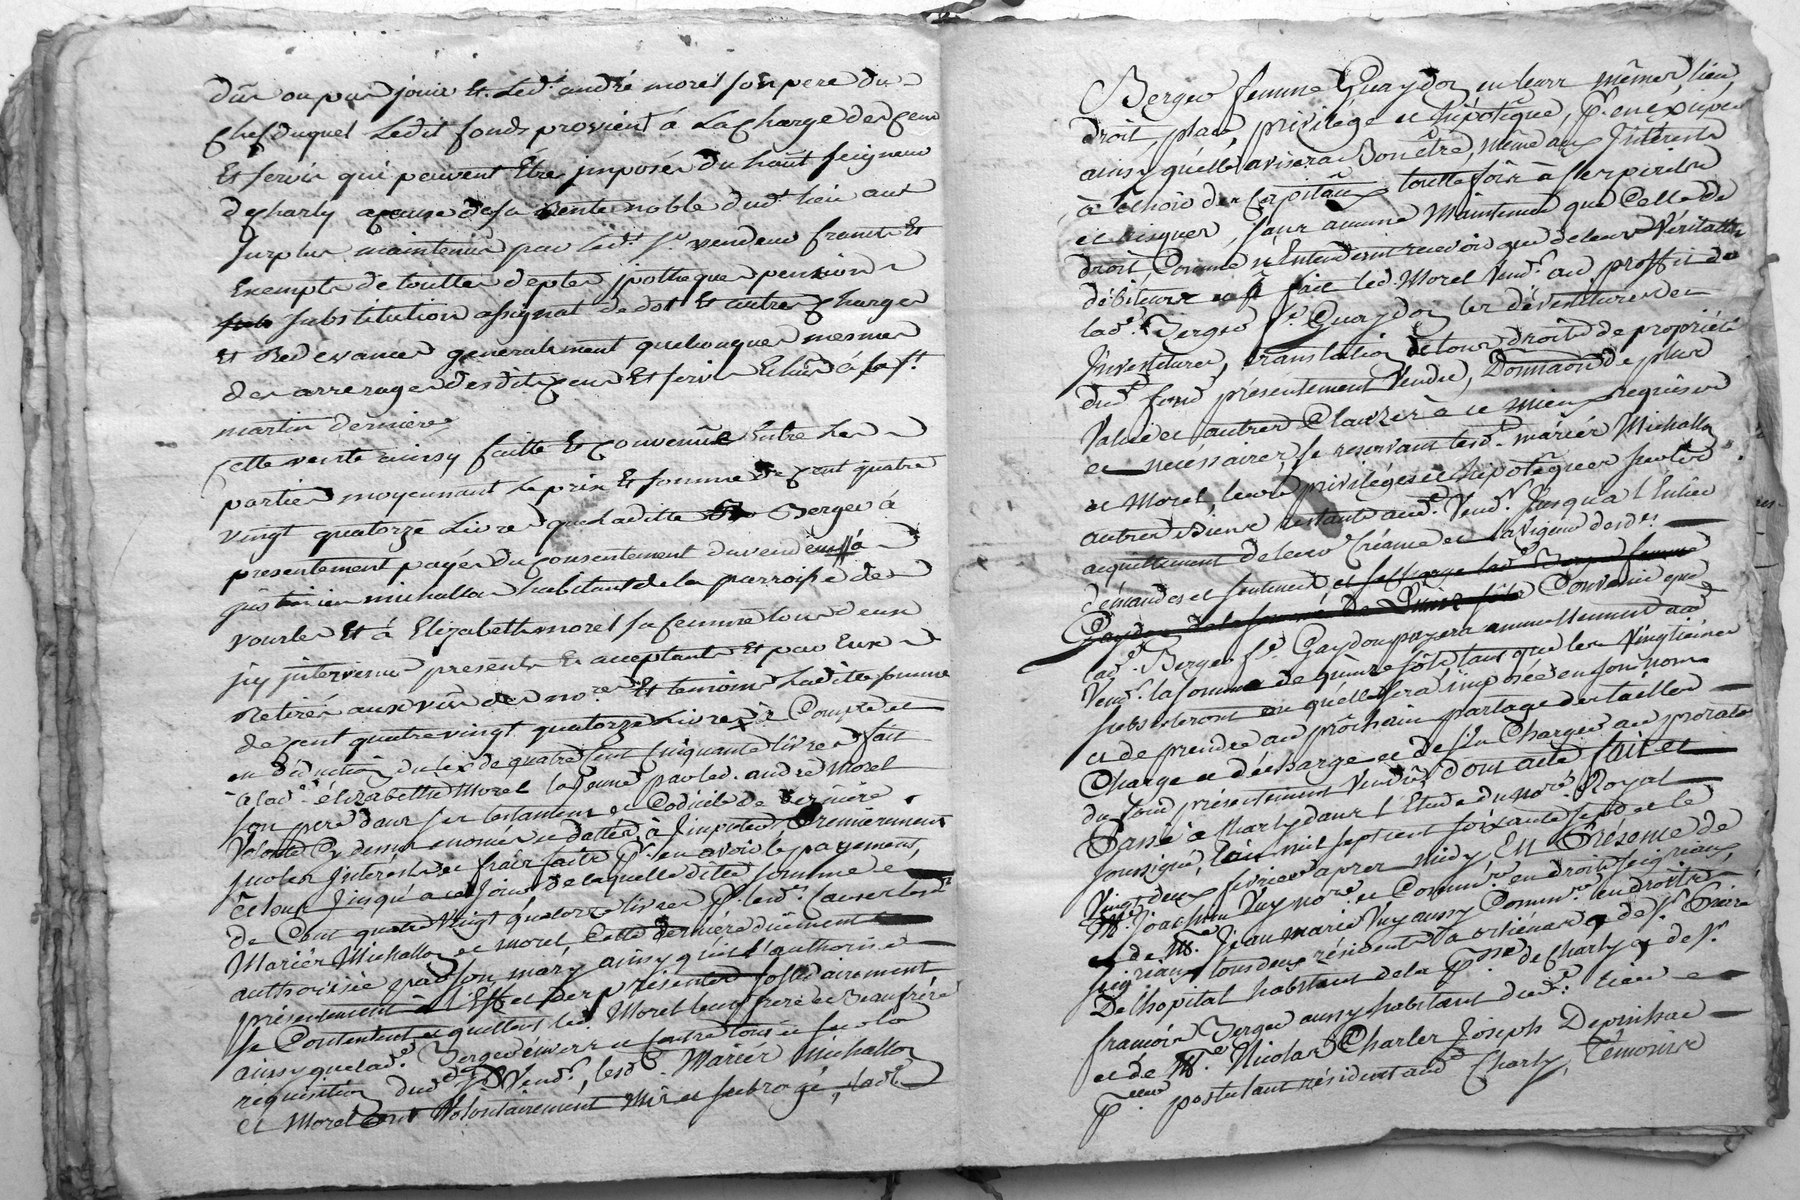 dûn ou pour jouir et led.t andré morel son pere du
chef duquel Ledit fonds provient à La charge des cens
Et servis qui peuvent Etre imposés du haut seigneur
de charly a cause de sa Rente noble dud.t lieu au
surplus maintenu par led.t s.r vendeur francs et
Exempts de touttes deptes ipotheques pensions
substitution assignat de dot Et autres charges
Et Redevances generalement quelconques mesmes
des arrerages desdits cens Et servis Echus à la s.t
martin derniere
Cette vente ainsy faitte Et convenüe Entre les
parties moyennant Le prix Et somme de cent quatre
vingt quatorze Livres que laditte Berger à
presentement payée du consentement du vendeur à
michallon habitant de la parroisse de
vourles Et à Elizabeth morel sa femme tous deux
icy intervenus presents Et acceptants Et par Eux
Retirés aux vûes des no.res Et temoins Laditte somme
de cent quatre vingt quatorze Livres à Compte et
en déduction du de quatre Cent Cinquante livres fait
a lad.e élizabethe Morel la jeune par led. andré Morel
son pere dans ses testament et Codicile de dernière
volonté Cy dessus enoncés et dattés, à Imputer Premierement
sur les Intérests et frais faits p.r en avoir le payement,
et tout jusqu'à ce jour de laquelle ditte somme
de Cent quatre Vingt quatorze livres
Mariés Michallon et morel, Cette dernière duëment
authorisée par son mary ainsy qu'il l'authorise
présentement à l'Effet des présentes solidairement
se Contentent et quittent led. Morel leur frere et Beaufrère
ainsy que lad.e Berger envers et contre tous et sur la
requisition dud. Vend.r, lesd. Mariés Michallon
et Morel ont Volontairement Mis et subrogé, lad.e
Berger femme Guaydon en leurs mêmes lieu,
droit, place, privilège et hipotêque, p.r en Exiper
ainsy qu'elle avisera Bon être, même aux Intérests
à Echoir des Capitaux touttefois à ses perils
et risques, sans aucune Maintenue que Celle de
droit Comme N'Entendant recevoir que de leurs Véritables
débiteurs et à fait led. Morel Vend.r au proffit de
lad.e Berger f.e Guaydon les dévestitures et
Investitures, translation de tous droits de propriété
dud. fond présentement Vendu, Donnaon de plus
Value et autres Clauzes à ce mieux requises
et nécéssaires, se reservant lesd. mariés Michallon
et Morel leurs privilèges et hipotêques sur les
autres Biens restants aud. Vend.r jusqu'à l'Entier
acquittement de leur Créance en la Vigueur desd.es
demandes et sentences
Convenu que
lad.e Berger f.e Gaydon payera annuellement aud
Vend.r la somme de quinze sols tant que les Vingtiemes
subsisteront ou qu'elle sera imposée en son nom
et de prendre au prochain partage des tailles
Charge et décharge et De s'en Charger au prorata
du fond présentement Vendu Dont acte fait et
Passé à Charly dans l'Etude du no.re Royal
soussigné, l'an mil sept cent soixante sept et le
Vingt deux fevrier apres midy, En Présence de
M.e Joachim Vuy no.re et Comm.re en droits seigneuriaux,
et de M.e Jean marie Vuy aussy Comm.re en droits
seigneuriaux tous deux résidents de s.r Pierre
De lhopital habitant de la p.sse de Charly, de s.r
francois Berger aussy habitant dud.t lieu
et de M.e Nicolas Charles Joseph
postulant résident aud Charly, Témoins